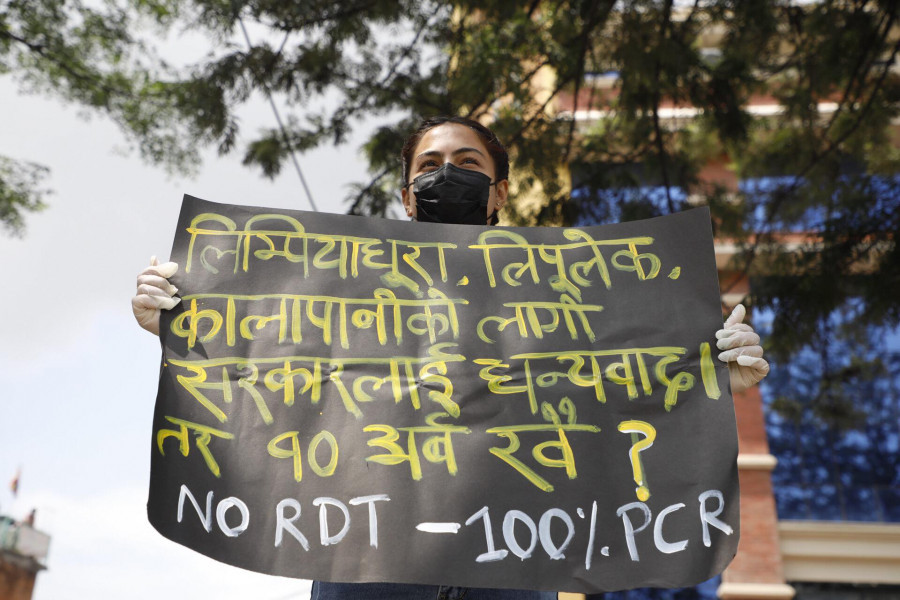 लिम्पियाधुरा, लिपुलेक,
कालापानीको लागी
सरकारलाई धन्यवाद।
तर १० अर्ब खै ?
NO RDT – 100% PCR